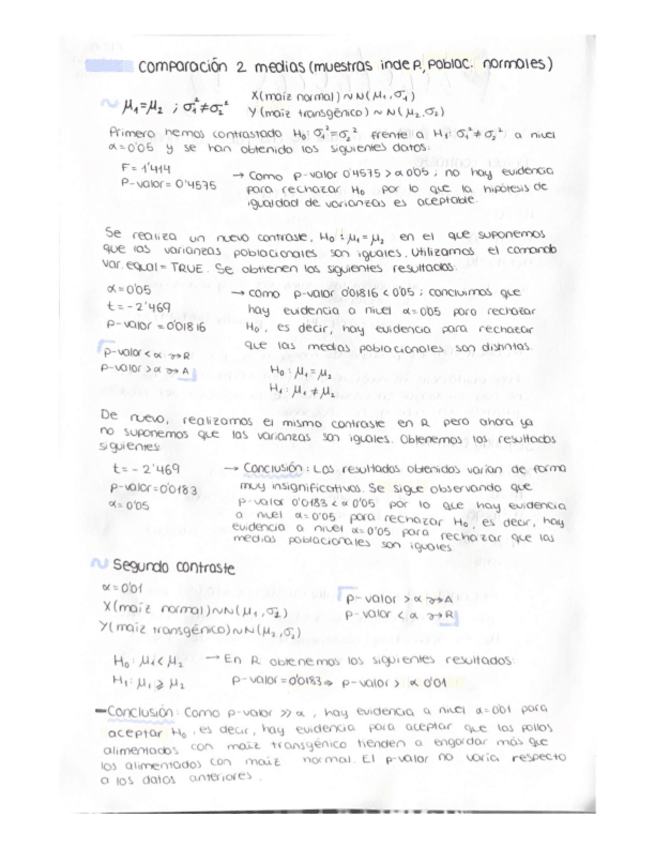 comparación 2 medias (muestras indep, poblac. normales)
~ μ₁=μ₂ ; σ₁²≠σ₂²
X(maíz normal) ~ N(μ₁,σ₁)
Y(maíz transgénico) ~ N(μ₂,σ₂)
Primero hemos contrastado H₀: σ₁²=σ₂² frente a H₁: σ₁²≠σ₂² a nivel
α=0'05 y se han obtenido los siguientes datos:
F = 1'414
P-valor = 0'4575
→ Como p-valor 0'4575 > α 0'05 ; no hay evidencia
para rechazar H₀ por lo que la hipótesis de
igualdad de varianzas es aceptable.
Se realiza un nuevo contraste, H₀ : μ₁=μ₂ en el que suponemos
que las varianzas poblacionales son iguales. Utilizamos el comando
var.equal = TRUE. Se obtienen los siguientes resultados:
α=0'05
t = - 2'469
p-valor = 0'01816
→ como p-valor 0'01816 < 0'05 ; concluimos que
hay evidencia a nivel α=0'05 para rechazar
H₀, es decir, hay evidencia para rechazar
que las medias poblacionales son distintas.
p-valor < α → R
p-valor > α → A
H₀ : μ₁=μ₂
H₁ : μ₁ ≠ μ₂
De nuevo, realizamos el mismo contraste en R pero ahora ya
no suponemos que las varianzas son iguales. Obtenemos los resultados
siguientes:
t = - 2'469
p-valor = 0'0183
α = 0'05
→ Conclusión : Los resultados obtenidos varían de forma
muy insignificativa. Se sigue observando que
p-valor 0'0183 < α 0'05 por lo que hay evidencia
a nivel α=0'05 para rechazar H₀, es decir, hay
evidencia a nivel α=0'05 para rechazar que las
medias poblacionales son iguales
~ Segundo contraste
α = 0'01
X(maíz normal)~N(μ₁,σ₂)
Y(maíz transgénico)~N(μ₂,σ₁)
p-valor > α → A
p-valor < α → R
H₀ : μ₁ < μ₂
H₁ : μ₁ ⩾ μ₂
→ En R obtenemos los siguientes resultados:
p-valor = 0'0183 ⇒ p-valor > α 0'01
- Conclusión : Como p-valor >> α , hay evidencia a nivel α=0'01 para
aceptar H₀, es decir, hay evidencia para aceptar que los pollos
alimentados con maíz transgénico tienden a engordar más que
los alimentados con maíz normal. El p-valor no varía respecto
a los datos anteriores.